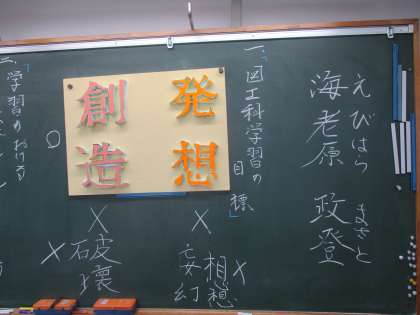 えびはら　まさと
海老原　政登
一、「図工科学習の
目標」
発想
創造
×
妄想×
幻想
×
×破壊
○
二、「学習のおける